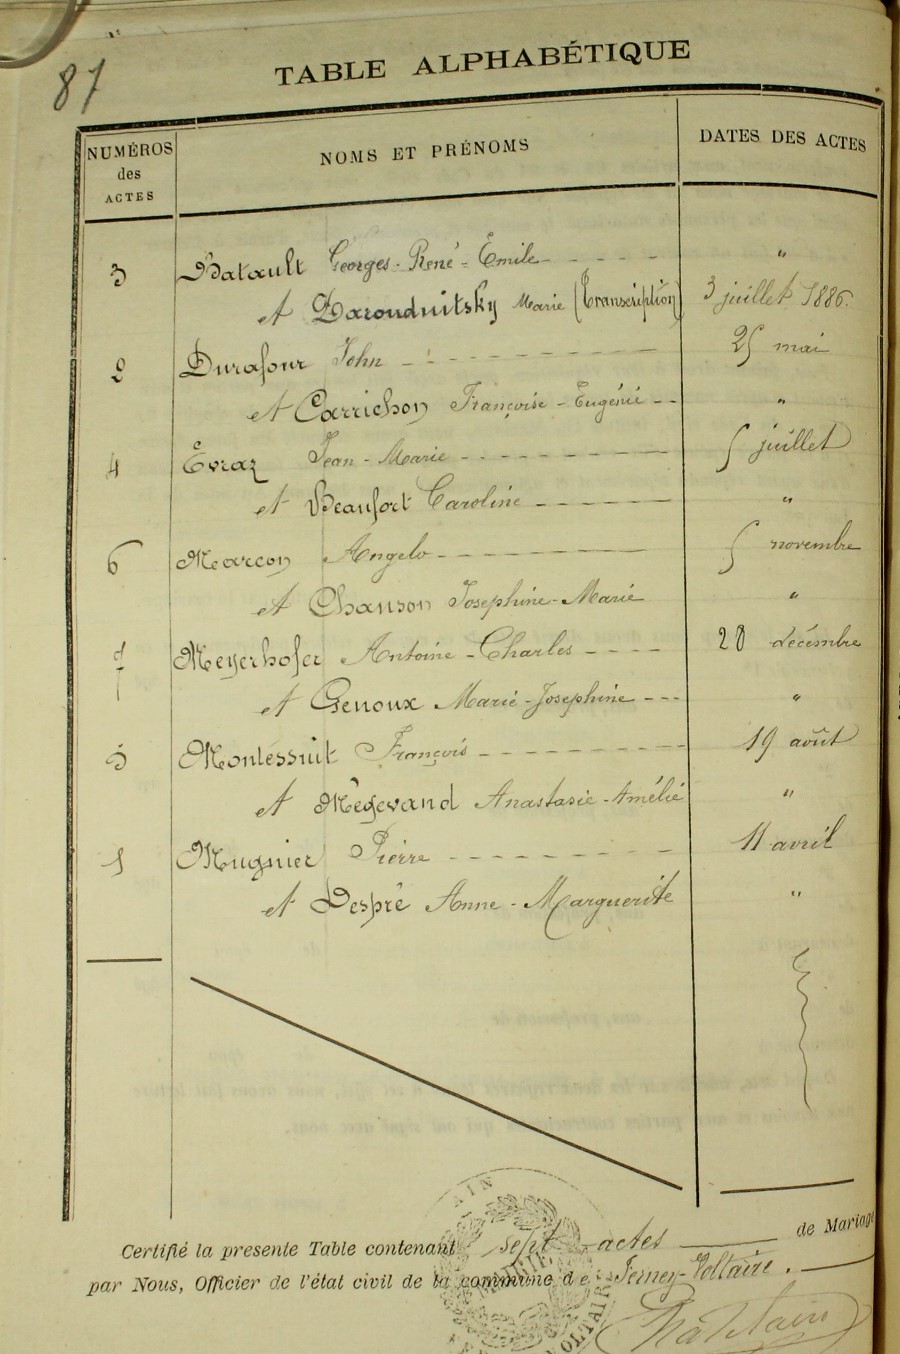 87
TABLE ALPHABÉTIQUE
NUMÉROS des ACTES
NOMS ET PRÉNOMS
DATES DES ACTES
3 Batault Georges-René-Émile - - - - "
et Daroudnitsky Marie (Transcription) 3 juillet 1886.
2 Durafour John - - - - - - - 25 mai
et Carrichon Françoise-Eugénie - - "
4 Évraz Jean-Marie - - - - - - - 5 juillet
et Beaufort Caroline - - - - - "
6 Marcon Angelo - - - - - - - 5 novembre
et Chanson Josephine-Marie "
7 Meyerhofer Antoine-Charles - - - - 28 décembre
et Genoux Marie-Josephine - - - "
5 Montessuit François - - - - - - - 19 août
et Mégevand Anastasie-Amélie "
1 Mugnier Pierre - - - - - - - 11 avril
et Despré Anne-Marguerite "
Certifié la presente Table contenant sept actes de Mariage
par Nous, Officier de l'état civil de la commune de Ferney-Voltaire.
AIN
MAIRIE
VOLTAIRE